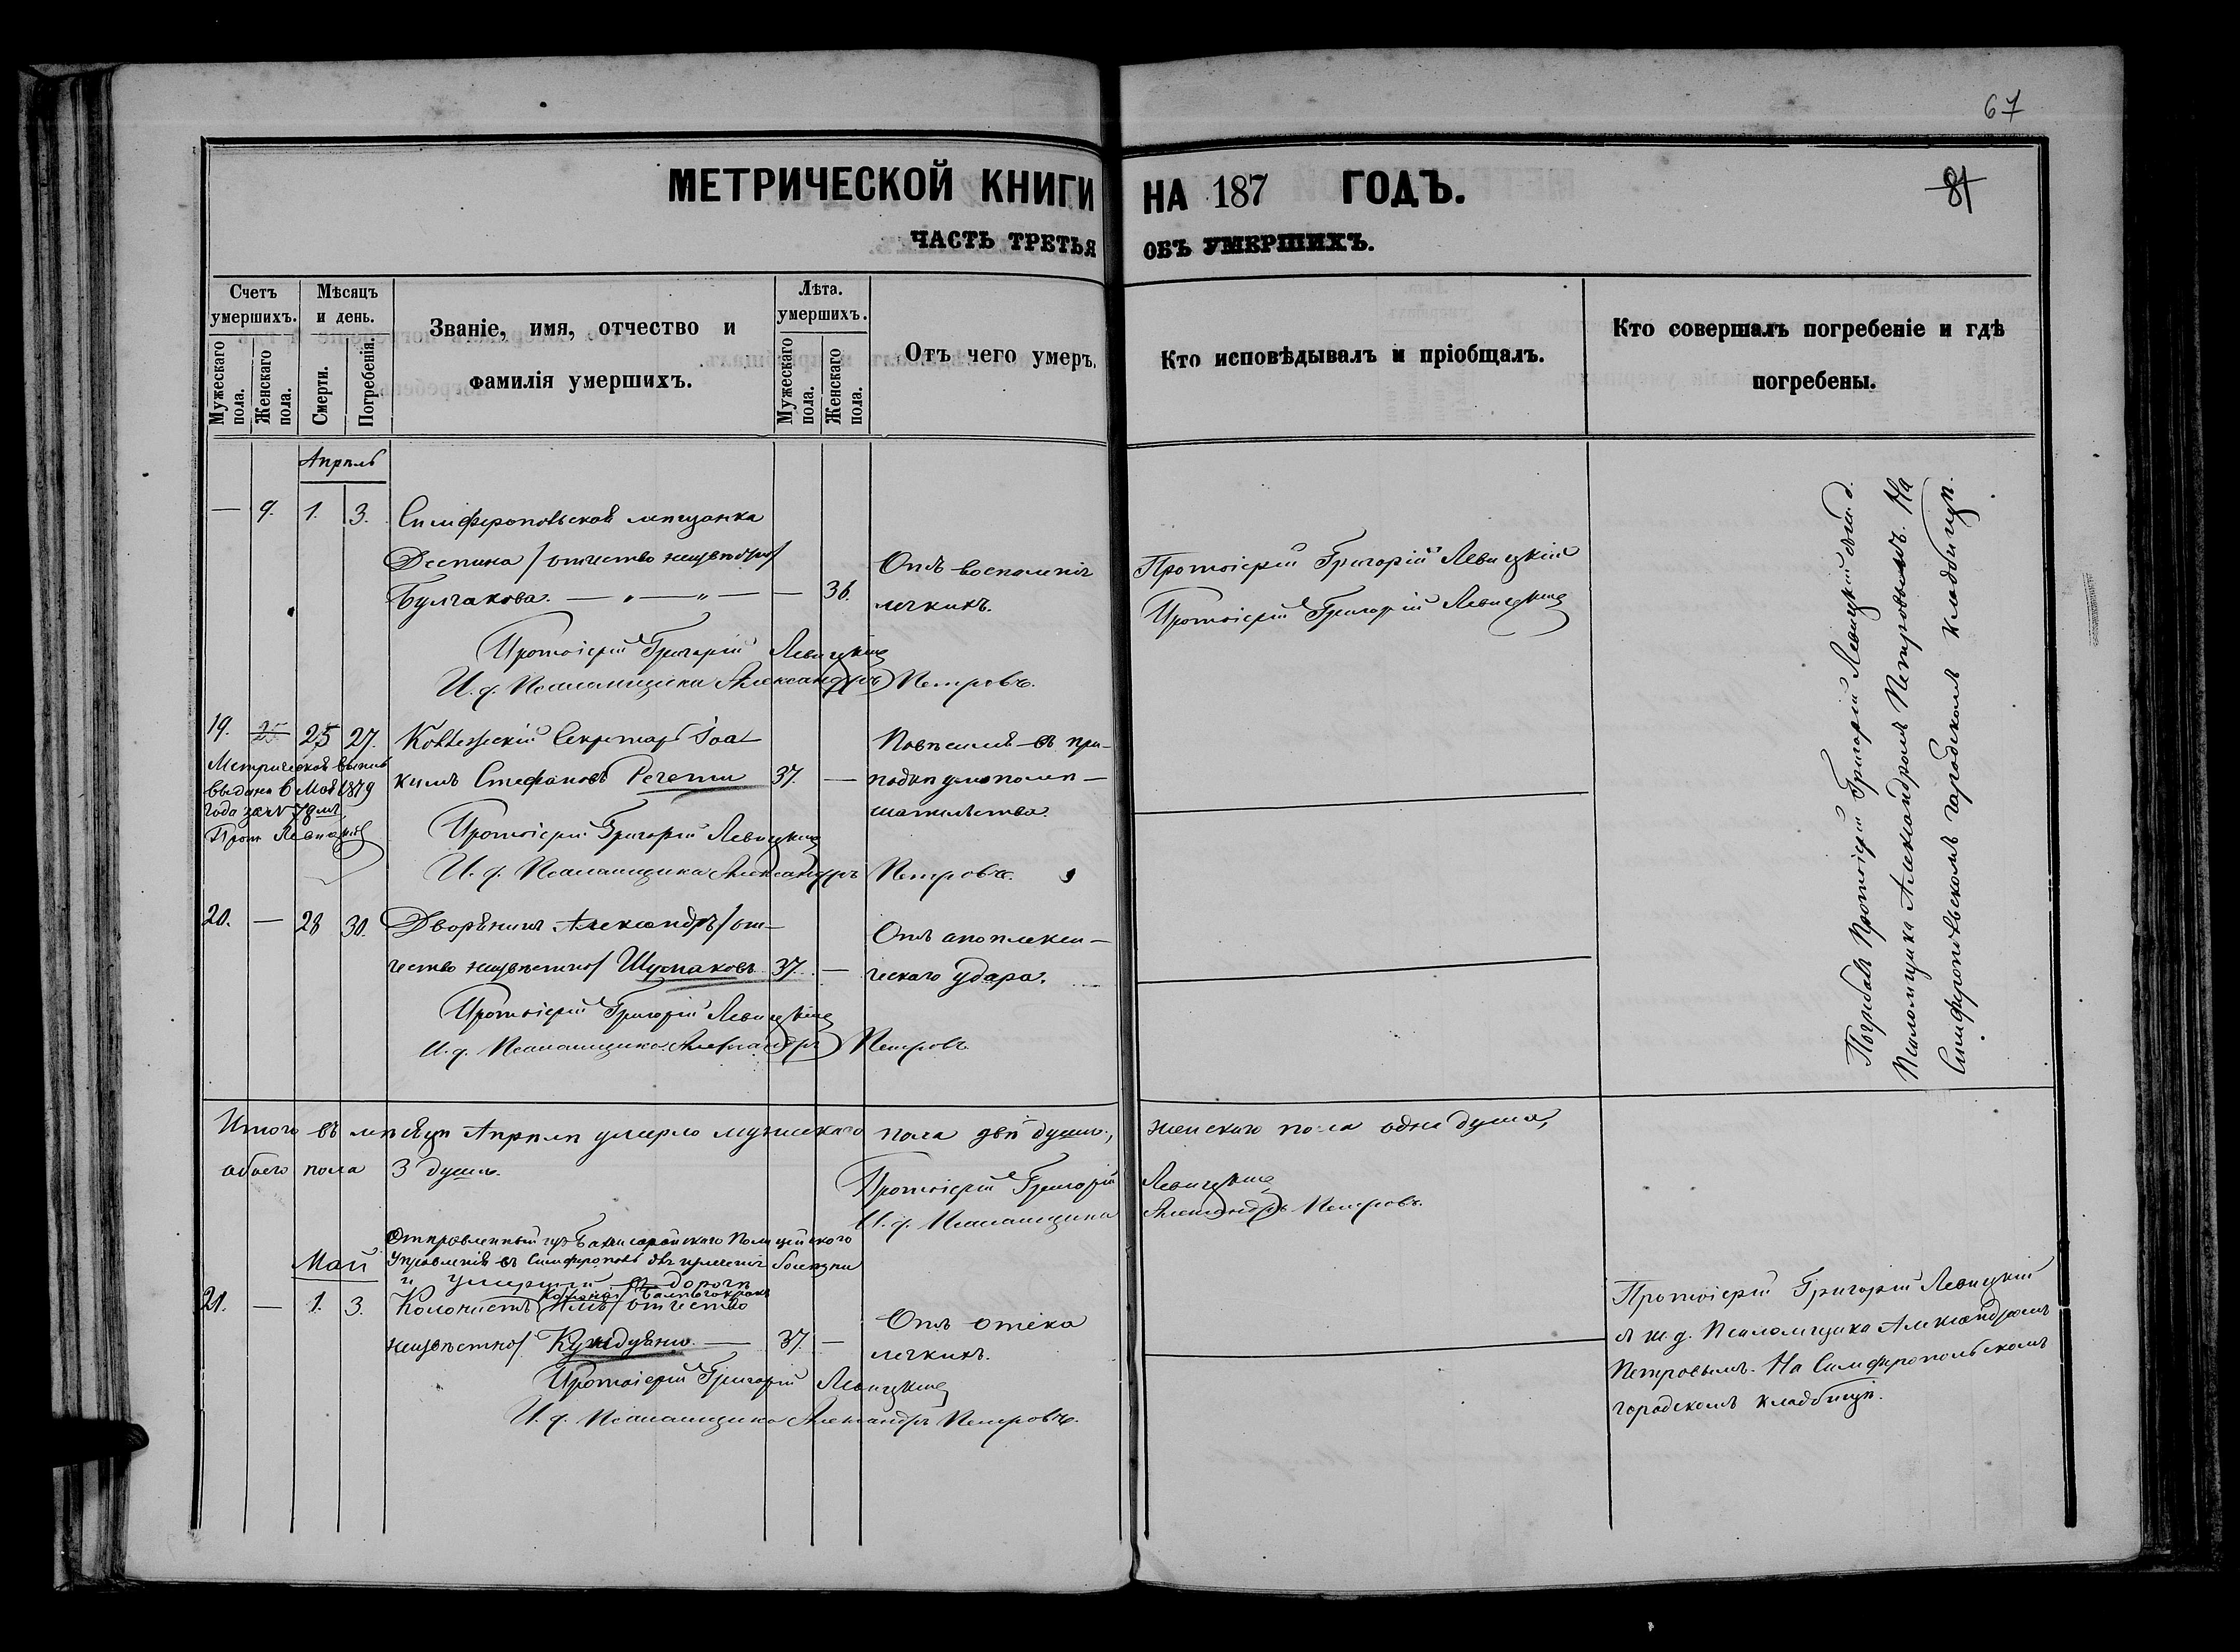 67
81
МЕТРИЧЕСКОЙ КНИГИ НА 187 ГОДЪ.
ЧАСТЬ ТРЕТЬЯ ОБЪ УМЕРШИХЪ.
Счетъ умершихъ.
Мужескаго пола.
Женскаго пола.
Мѣсяцъ и день.
Смерти.
Погребенія.
Званіе, имя, отчество и
фамилія умершихъ.
Лѣта умершихъ.
Мужескаго пола.
Женскаго пола.
Отъ чего умеръ.
Кто исповѣдывалъ и пріобщалъ.
Кто совершалъ погребеніе и гдѣ
погребены.
Апрѣль
— 9. 1. 3. Симферопольская мѣщанка
Деспина /отчество неизвѣстно/ Отъ воспаленія Протоіерей Григорій Левицкій
Булгакова. — „ — „ — — 36. легкихъ. Протоіерей Григорій Левицкій
Протоіерей Григорій Левицкій
И. д. Псаломщика Александръ Петровъ.
19. 25 27. Коллежскій Секретарь Іоа- Повѣсился въ при-
кимъ Стефановъ Речети 37. — падкѣ умопомѣ-
шательства.
Метрическая выпись
выдана 6 Мая 1879
года за №
Прот Левицкій
Протоіерей Григорій Левицкій
И. д. Псаломщика Александръ Петровъ.
20. — 28 30. Дворянинъ Александръ /от- Отъ апоплекси-
чество неизвѣстно/ Шумаковъ 37. — ческаго удара.
Протоіерей Григорій Левицкій
И. д. Псаломщика Александръ Петровъ
Погребалъ Протоіерей Григорій Левицкій съ и. д.
Псаломщика Александромъ Петровымъ. На
Симферопольскомъ городскомъ кладбищѣ.
Итого въ мѣсяцѣ Апрѣлѣ умерло мужескаго пола двѣ души, женскаго пола одна душа,
обоего пола 3 душъ.
Протоіерей Григорій Левицкій
И. д. Псаломщика Александръ Петровъ.
Май
Отправленный изъ Бахчисарайскаго Полицейскаго
Управленія въ Симферополь для излеченія болѣзни
и умершій въ дорогѣ
21. — 1. 3. Колонистъ /отчество
неизвѣстно/ 37. — Отъ отёка
легкихъ.
Протоіерей Григорій Левицкій
И. д. Псаломщика Александръ Петровъ.
Протоіерей Григорій Левицкій
съ и. д. Псаломщика Александромъ
Петровымъ. На Симферопольскомъ
городскомъ кладбищѣ.